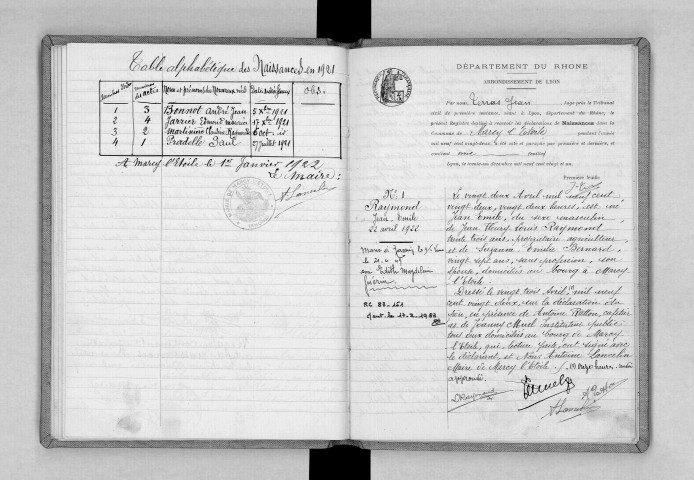 Table alphabétique des Naissances en 1921
Numéros des actes
Noms et prénoms des Nouveaux nés
Obs.
1 3 Bonnot André Jean 5 Xbre 1921
2 4 Jarrier Edmond 17 Xbre 1921
3 2 Martinière Claudine 6 oct. id
4 1 Pradelle Paul 27 juillet 1921
A Marcy l'Etoile le 1er Janvier 1922
Le Maire :
A Lancelin
DÉPARTEMENT DU RHONE
ARRONDISSEMENT DE LYON
Par nous, Terras Jean Juge près le Tribunal
civil de première instance, séant à Lyon, département du Rhône, le
présent Registre destiné à recevoir les déclarations de Naissances dans la
Commune de Marcy l'Etoile pendant l'année
mil neuf cent vingt-deux, a été coté et paraphé par première et dernière, et
contient feuillets
Lyon, le trente-un décembre mil neuf cent vingt et un.
Première feuille
N. 1
Raymond
Jean Emile
22 avril 1922
Marié à
le 21
Edith Magdeleine
Guérin
RC 88-151
17.2.1988
Le vingt deux Avril mil neuf cent
vingt deux, vingt deux heures, est né
Jean Emile, du sexe masculin
de Jean Henry Louis Raymond
trente trois ans, propriétaire agriculteur
et de Suzanne Emilie Bernard
vingt sept ans, sans profession, son
épouse, domiciliés au bourg à Marcy
l'Etoile
Dressé le vingt trois Avril mil neuf
cent vingt deux, sur la déclaration du
père, en présence de Antoine
et de Joanny Muel Instituteur public
tous deux domiciliés au bourg de Marcy
l'Etoile, qui, lecture faite, ont signé avec
le déclarant, et Nous Antoine Lancelin
Maire de Marcy l'Etoile ./. onze heures
approuvé.
Raymond
Muel
A Lancelin